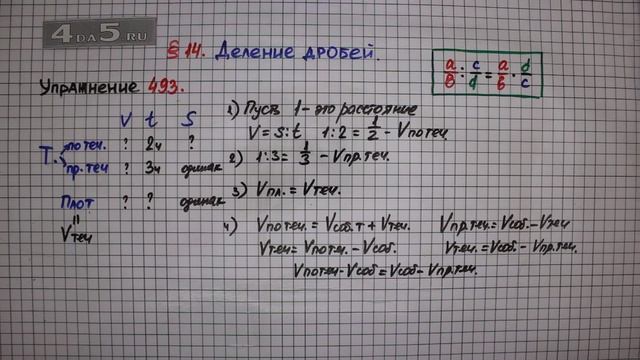 4DA5.RU
§ 14. Деление дробей.
a/b : c/d = a/b · d/c
Упражнение 493.
V t S
Т. по теч. ? 2ч ?
пр. теч ? 3ч одинак
Плот ? ? одинак
"
Vтеч
1) Пусть 1 - это расстояние
V = S:t 1:2 = 1/2 - Vпо теч.
2) 1:3 = 1/3 - Vпр.теч.
3) Vпл. = Vтеч.
4) Vпо теч. = Vсоб. т + Vтеч. Vпр.теч. = Vсоб. - Vтеч
Vтеч = Vпо теч. - Vсоб. Vтеч. = Vсоб - Vпр.теч.
Vпо теч - Vсоб = Vсоб - Vпр.теч.